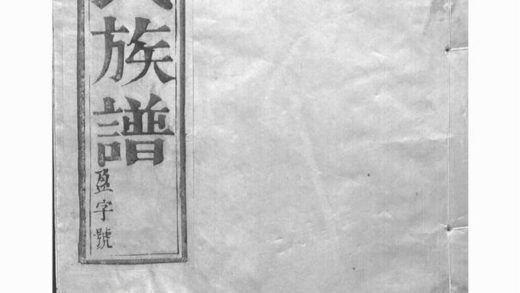 氏族譜
盈字號